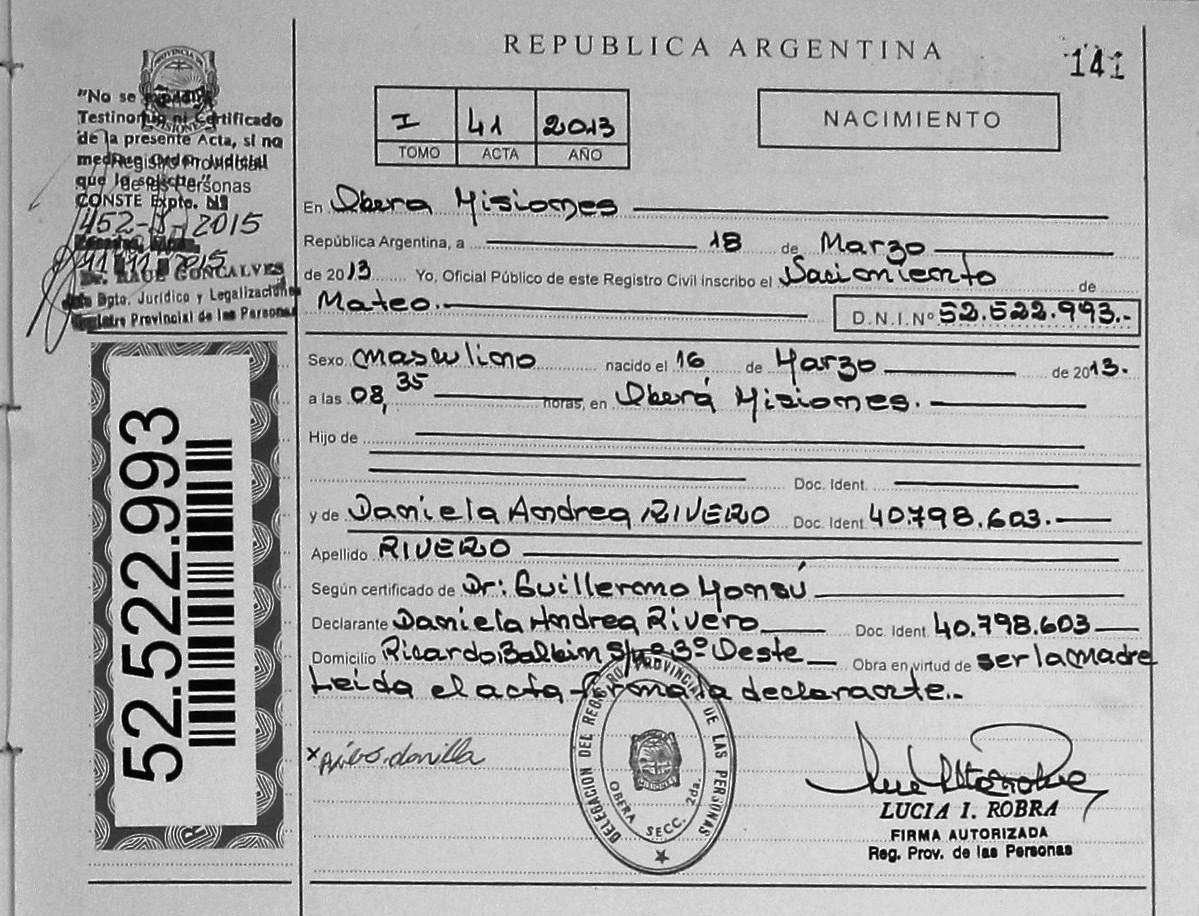 REPUBLICA ARGENTINA
141
PROVINCIA
MISIONES
"No se
Testimonio ni Certificado
de la presente Acta, si no
media Orden Judicial
que lo solicite"
Registro Provincial
de las Personas
CONSTE Expte. Nº
452- -2015
11 11 2015
Dr. RAUL GONCALVES
Dpto. Jurídico y Legalización
Registro Provincial de las Personas
52.522.993
I 41 2013
TOMO ACTA AÑO
NACIMIENTO
En Obera Misiones
República Argentina, a 18 de Marzo
de 2013 Yo, Oficial Público de este Registro Civil inscribo el Nacimiento de
Mateo. D.N.I.Nº 52.522.993.-
Sexo masculino nacido el 16 de Marzo de 2013.
a las 08,35 horas, en Oberá Misiones.
Hijo de
Doc. Ident.
y de Daniela Andrea RIVERO Doc. Ident. 40.798.603.
Apellido RIVERO
Según certificado de Dr: Guillermo
Declarante Daniela Andrea Rivero Doc. Ident. 40.798.603
Domicilio Ricardo Balbin S/nº 3º Oeste Obra en virtud de ser la madre
Leida el acta firma la declarante.-
DELEGACION DEL REGISTRO PROVINCIAL DE LAS PERSONAS
MISIONES
OBERA SECC. 2da.
LUCIA I. ROBRA
FIRMA AUTORIZADA
Reg. Prov. de las Personas